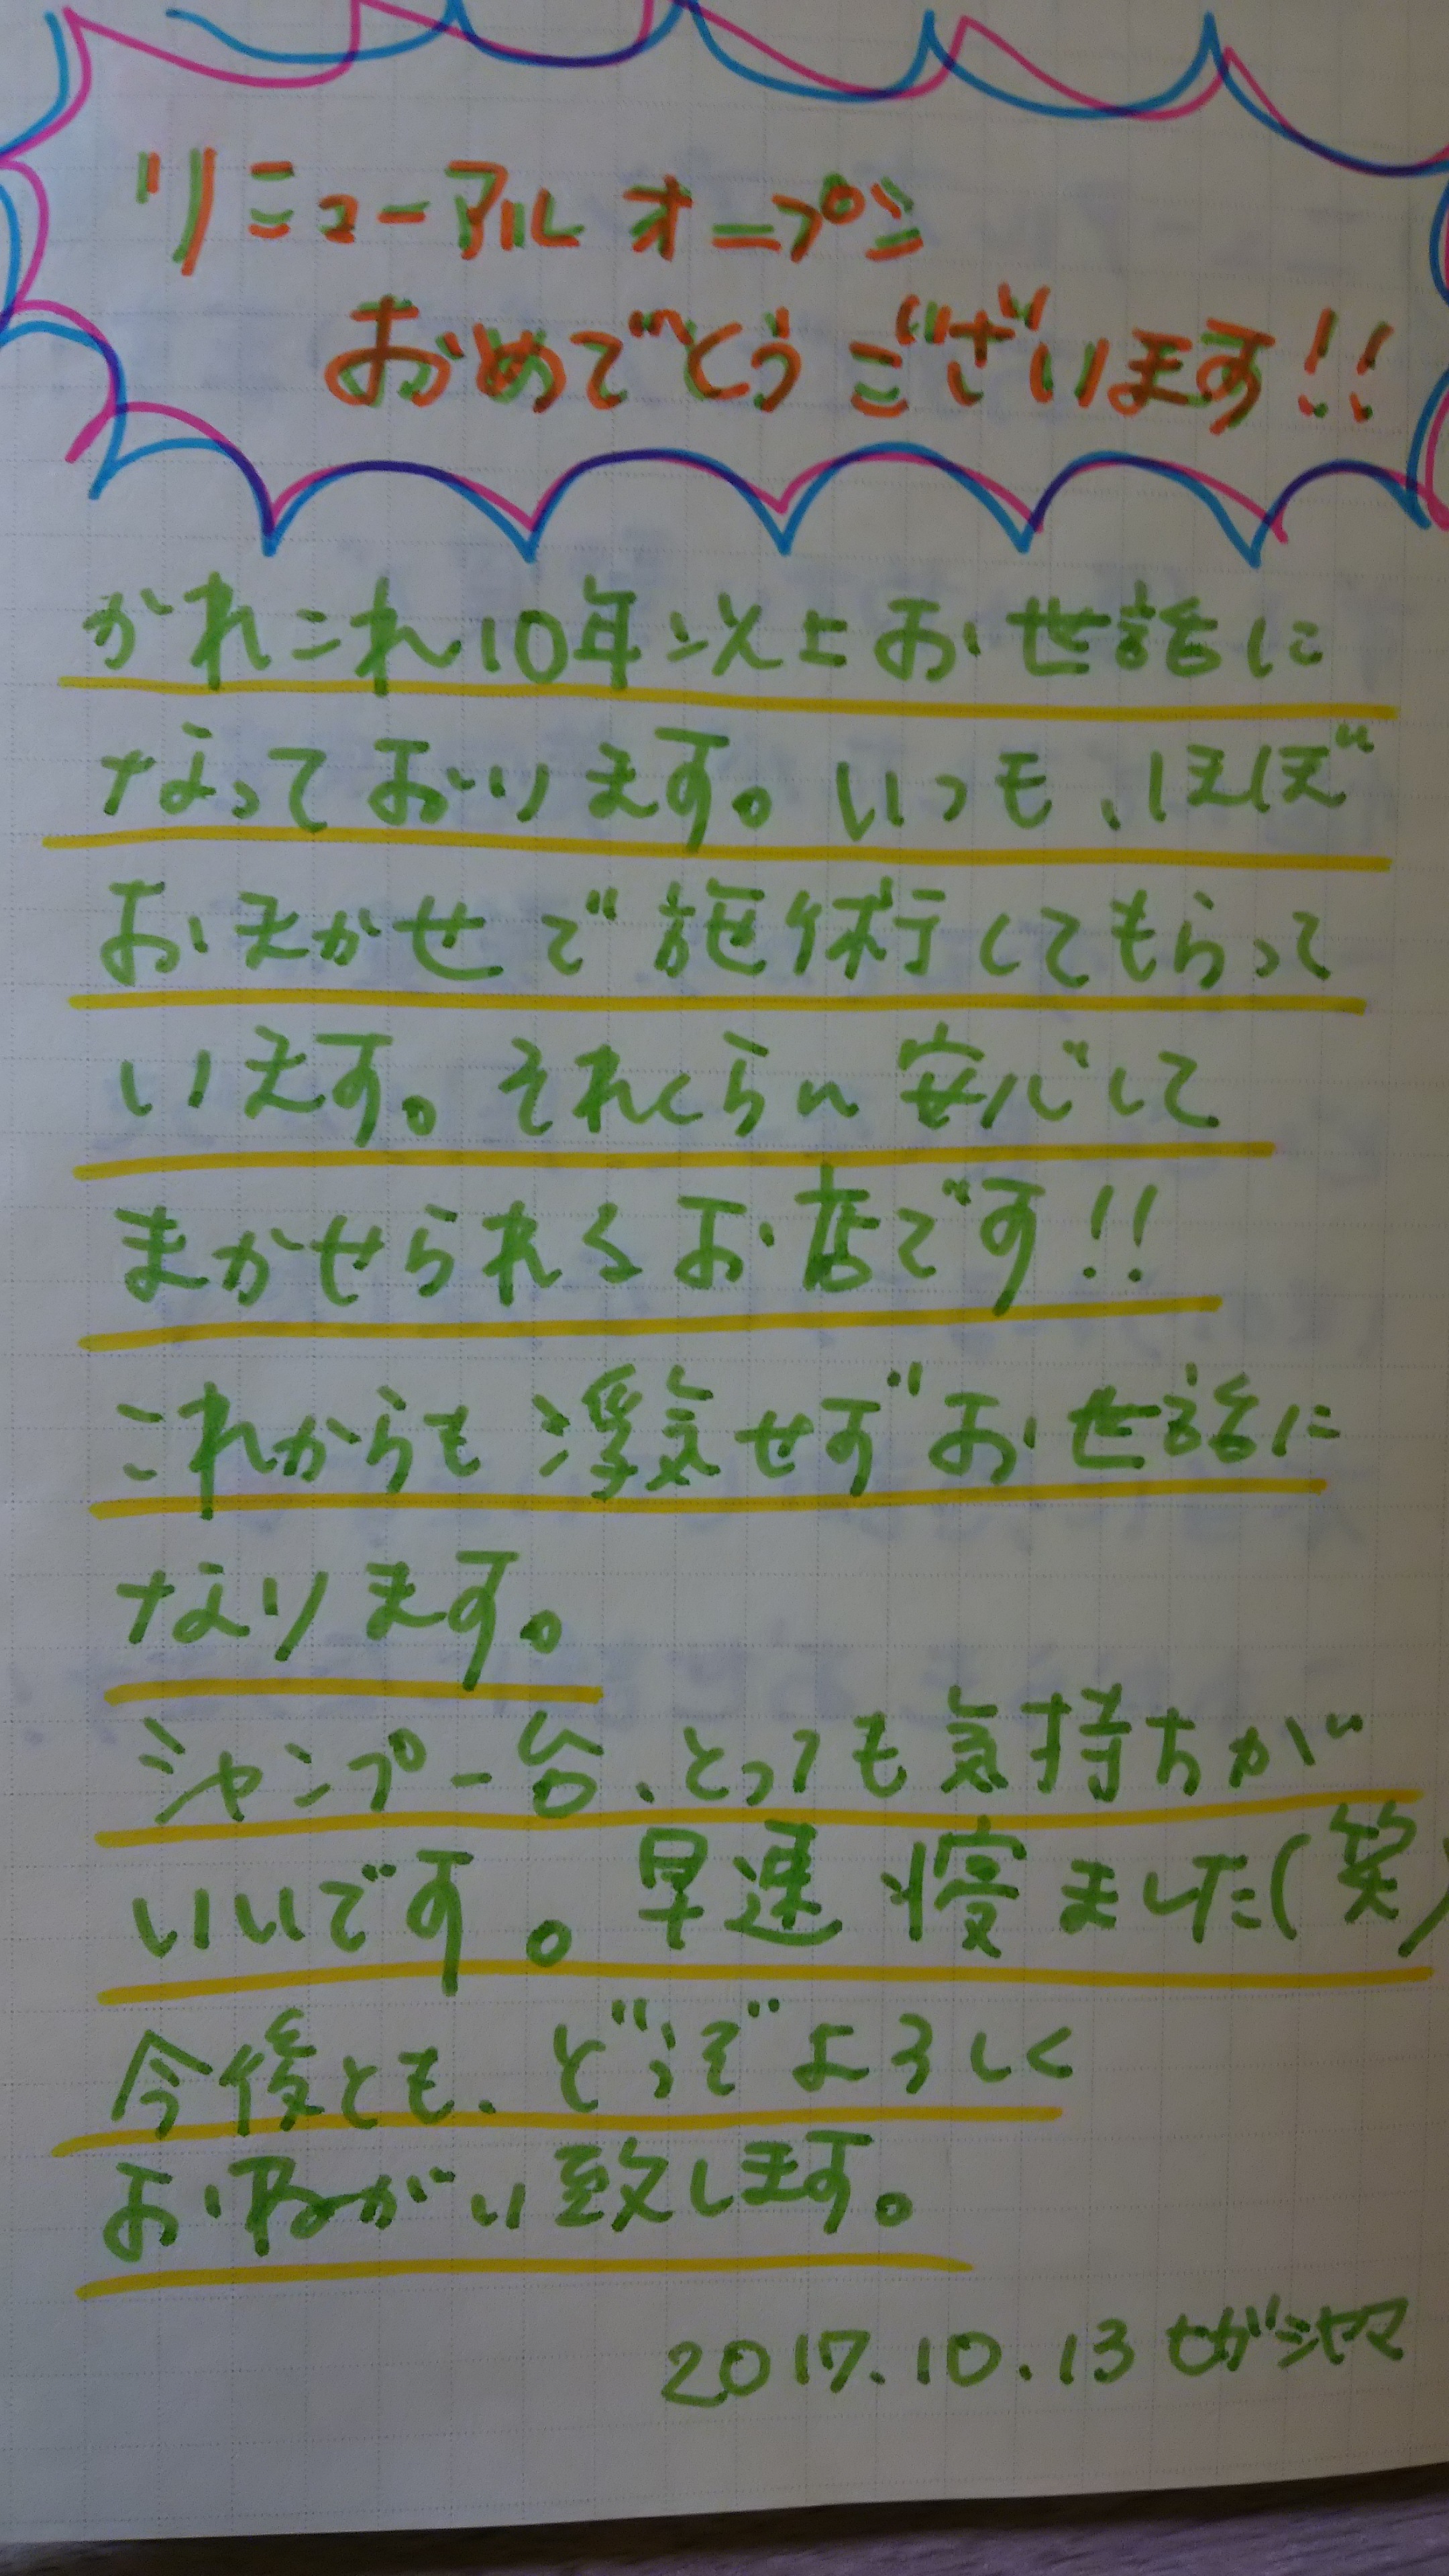 リニューアル オープン
おめでとうございます!!
かれこれ10年以上お世話に
なっております。いつも、ほぼ
おまかせで施術してもらって
います。それくらい安心して
まかせられるお店です!!
これからも浮気せずお世話に
なります。
シャンプー台、とっても気持ちが
いいです。早速寝ました(笑)
今後とも、どうぞよろしく
おねがい致します。
2017.10.13 ヒガシヤマ